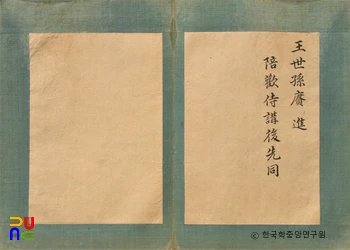 王世孫賡進
陪歡侍講後先同
ⓒ 한국학중앙연구원